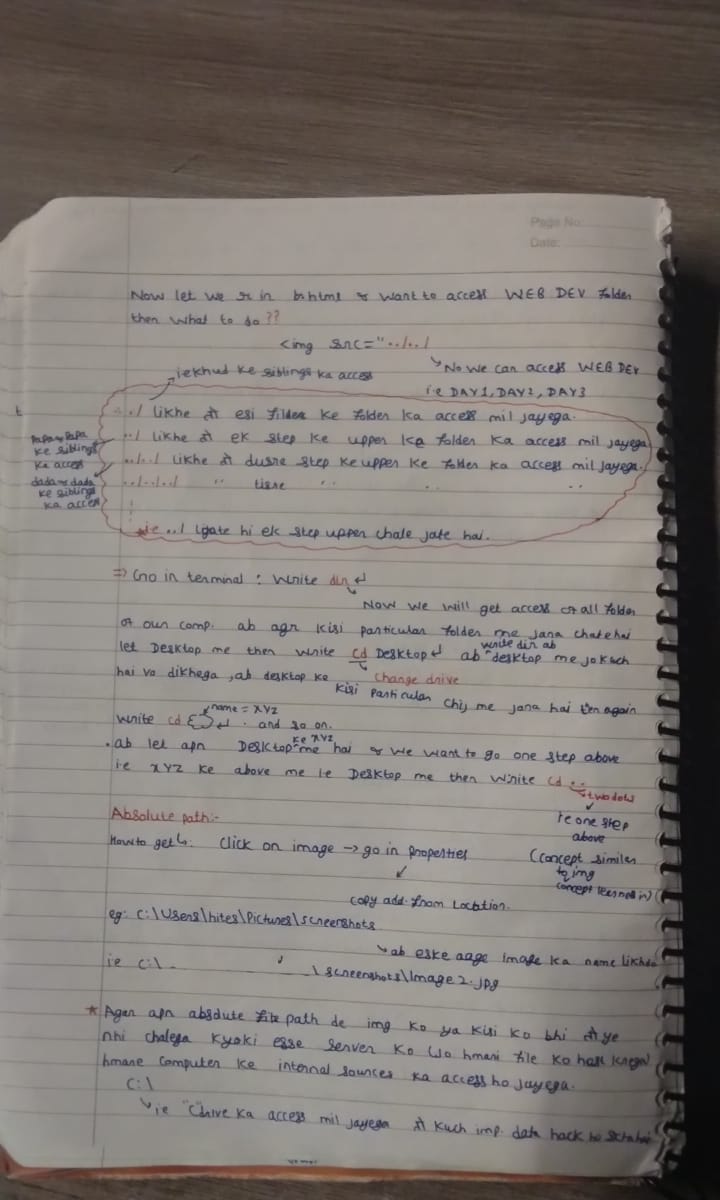 Page No:
Date:
Now let we r in b.html & want to access WEB DEV folder
then what to do ??
<img src="../../
No we can access WEB DEV
i.e DAY1, DAY2, DAY3
i.e khud ke siblings ka access
./ likhe तो esi folder ke folder ka access mil jayega.
../ likhe तो ek step ke upper ke folder ka access mil jayega
../../ likhe तो dusre step ke upper ke folder ka access mil jayega.
../../../ " tisre " "
papa & papa
ke siblings
ka access
dada & dada
ke siblings
ka access
ie ../ lgate hi ek step upper chale jate hai.
=> Go in terminal : write dir ↵
Now we will get access of all folder
of our comp. ab agr kisi particular folder me jana chate hai
let Desktop me then write cd Desktop ↵ ab write dir ab desktop me jo kuch
hai vo dikhega, ab desktop ke kisi particular chij me jana hai then again
change drive
write cd { } ↵ . and so on.
name = XYZ
. ab let apn Desktop ke XYZ me hai & we want to go one step above
ie XYZ ke above me ie Desktop me then write cd ..
two dots
ie one step
above
(concept similer
to img
concept
Absolute path:-
How to get ↳: click on image → go in properties
copy add. from Location.
eg: C:\Users\hites\Pictures\screenshots
ab eske aage image ka name likhdo
ie C:\ \screenshots\Image2.jpg
* Agar apn absolute file path de img ko ya kisi ko bhi तो ye
nhi chalega kyoki esse server ko jo hmari file ko host krega
hmare computer ke internal sources ka access ho jayega.
C:\
ie "C" drive ka access mil jayega तो kuch imp. data hack ho skta hai